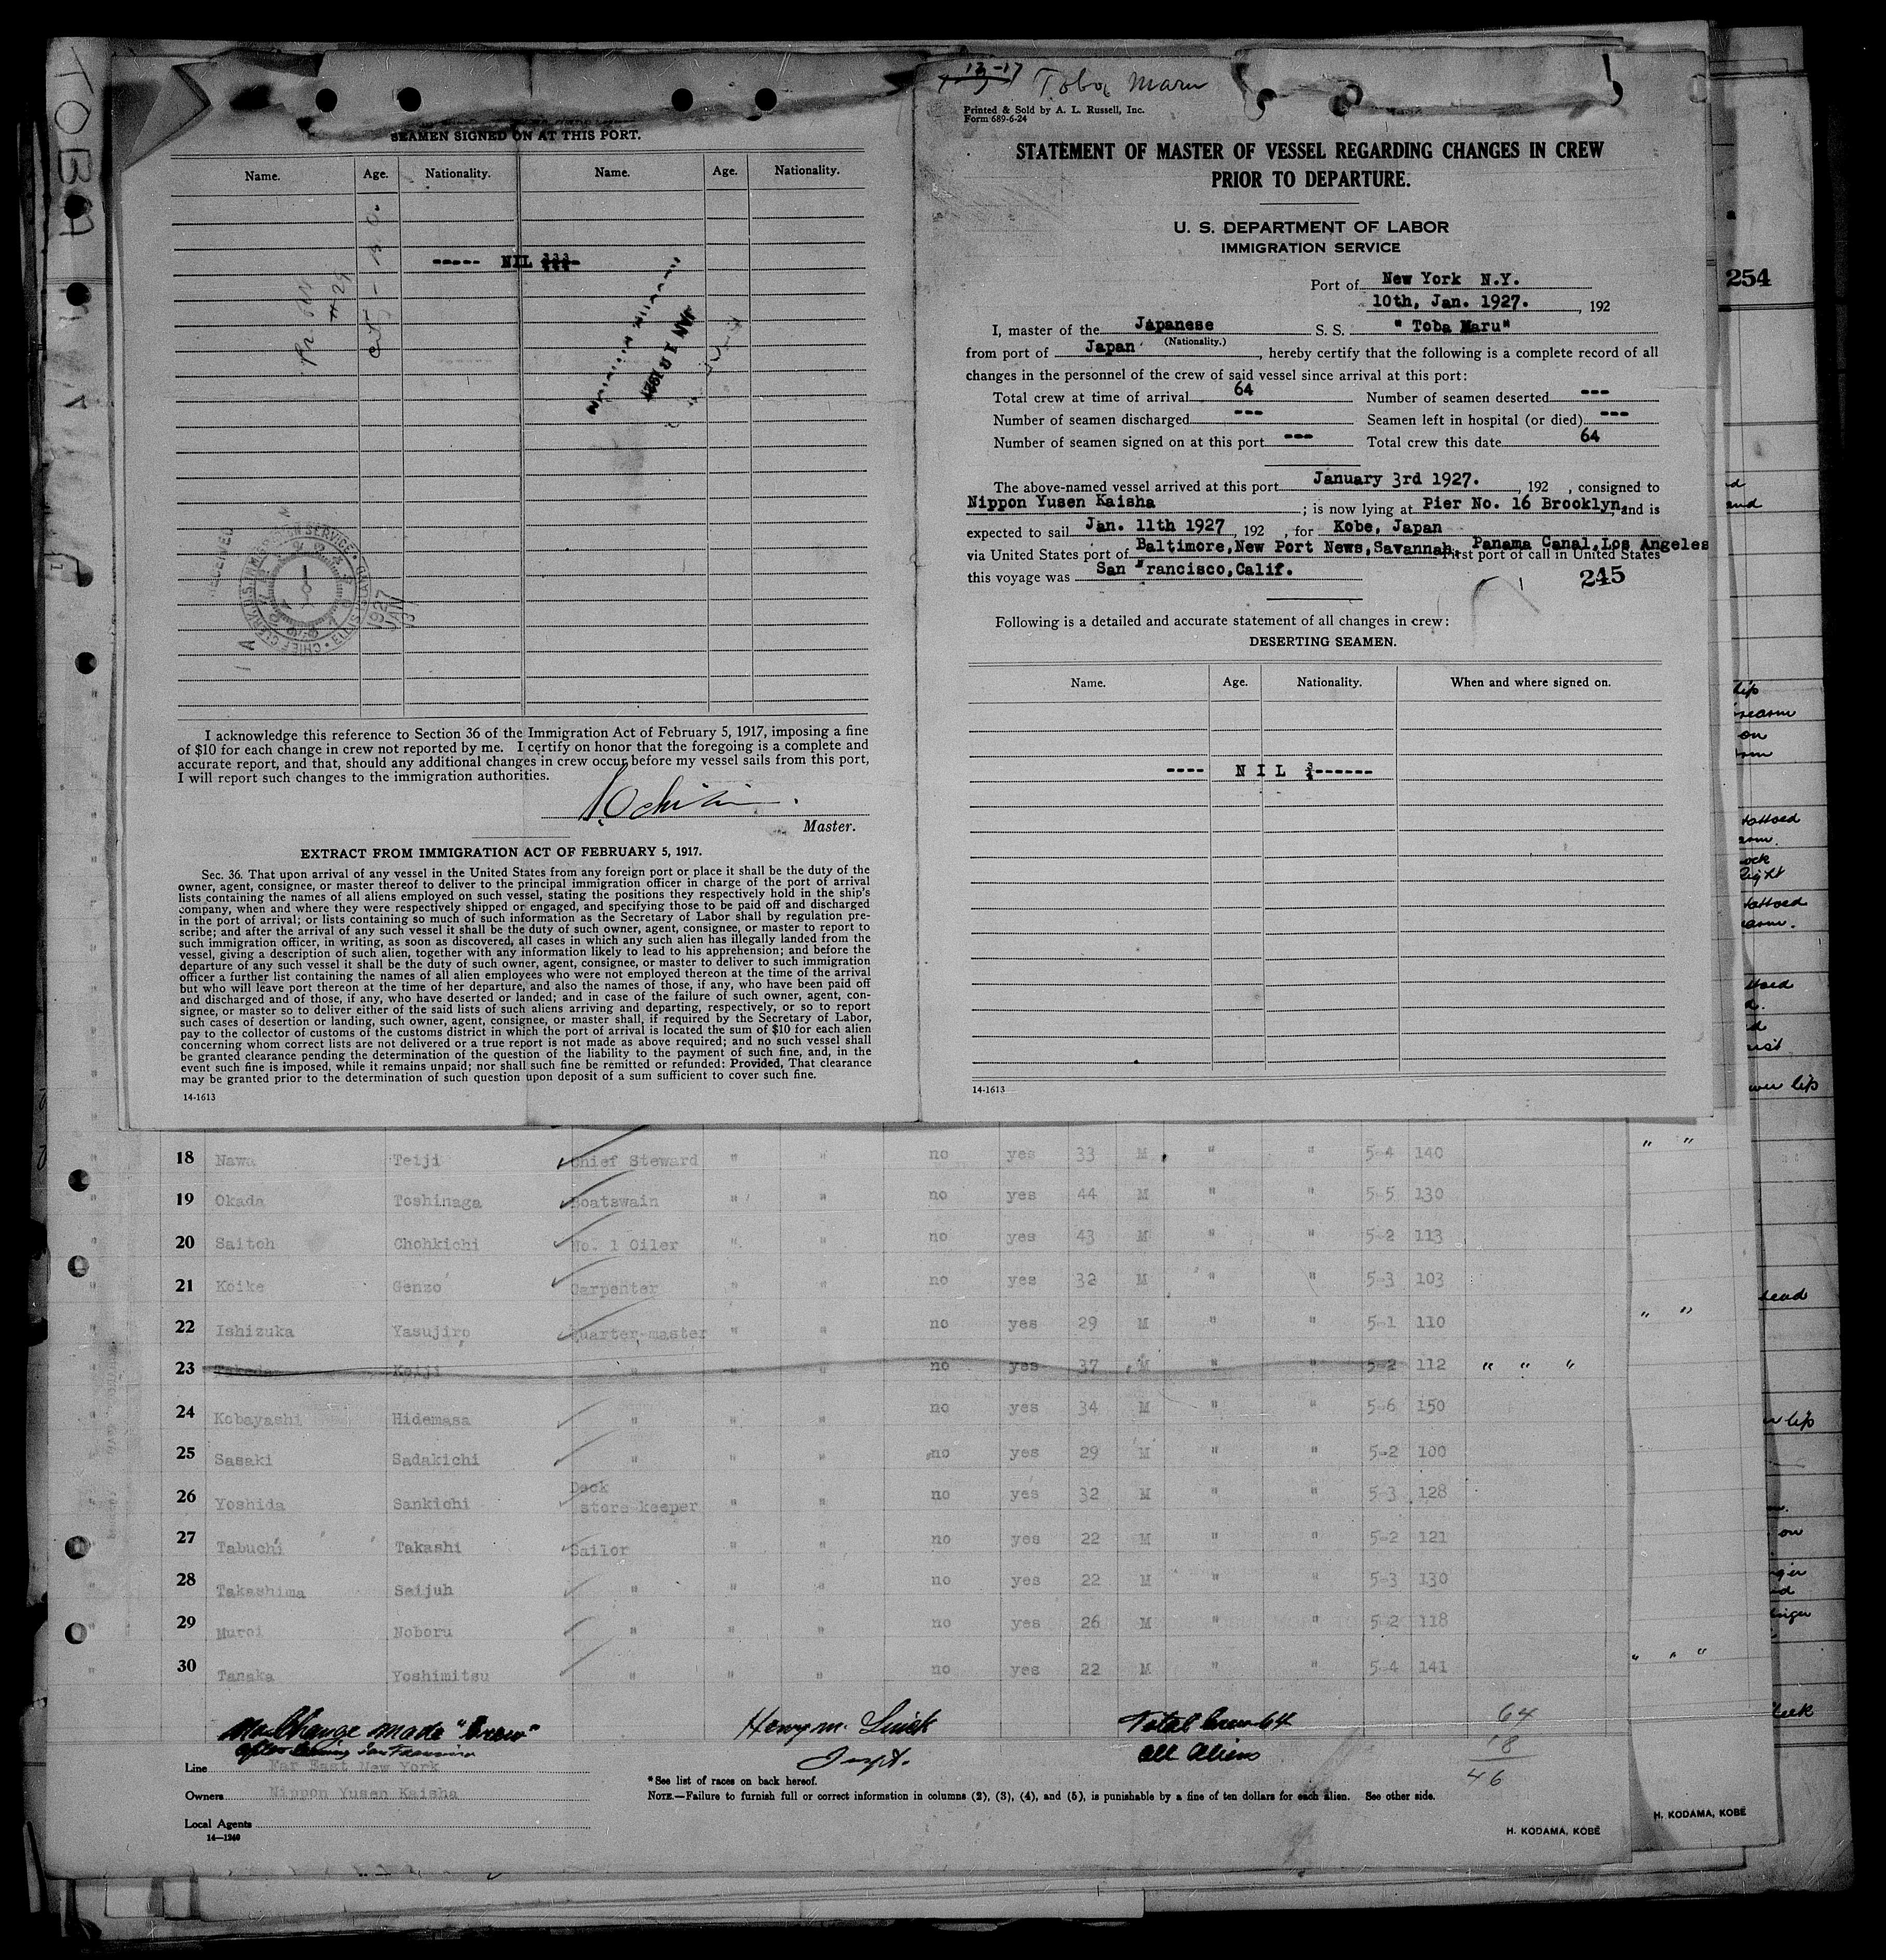 TOBA M
SEAMEN SIGNED ON AT THIS PORT.
Name. Age. Nationality. Name. Age. Nationality.
----- NIL
JAN 1927
RECEIVED
CHIEF CLERK, U.S. IMMIGRATION SERVICE
1927 JAN
I acknowledge this reference to Section 36 of the Immigration Act of February 5, 1917, imposing a fine
of $10 for each change in crew not reported by me. I certify on honor that the foregoing is a complete and
accurate report, and that, should any additional changes in crew occur before my vessel sails from this port,
I will report such changes to the immigration authorities.
Master.
EXTRACT FROM IMMIGRATION ACT OF FEBRUARY 5, 1917.
Sec. 36. That upon arrival of any vessel in the United States from any foreign port or place it shall be the duty of the
owner, agent, consignee, or master thereof to deliver to the principal immigration officer in charge of the port of arrival
lists containing the names of all aliens employed on such vessel, stating the positions they respectively hold in the ship's
company, when and where they were respectively shipped or engaged, and specifying those to be paid off and discharged
in the port of arrival; or lists containing so much of such information as the Secretary of Labor shall by regulation pre-
scribe; and after the arrival of any such vessel it shall be the duty of such owner, agent, consignee, or master to report to
such immigration officer, in writing, as soon as discovered, all cases in which any such alien has illegally landed from the
vessel, giving a description of such alien, together with any information likely to lead to his apprehension; and before the
departure of any such vessel it shall be the duty of such owner, agent, consignee, or master to deliver to such immigration
officer a further list containing the names of all alien employees who were not employed thereon at the time of the arrival
but who will leave port thereon at the time of her departure, and also the names of those, if any, who have been paid off
and discharged and of those, if any, who have deserted or landed; and in case of the failure of such owner, agent, con-
signee, or master so to deliver either of the said lists of such aliens arriving and departing, respectively, or so to report
such cases of desertion or landing, such owner, agent, consignee, or master shall, if required by the Secretary of Labor,
pay to the collector of customs of the customs district in which the port of arrival is located the sum of $10 for each alien
concerning whom correct lists are not delivered or a true report is not made as above required; and no such vessel shall
be granted clearance pending the determination of the question of the liability to the payment of such fine, and, in the
event such fine is imposed, while it remains unpaid; nor shall such fine be remitted or refunded: Provided, That clearance
may be granted prior to the determination of such question upon deposit of a sum sufficient to cover such fine.
14-1613
Toba Maru
Printed & Sold by A. L. Russell, Inc.
Form 689-6-24
STATEMENT OF MASTER OF VESSEL REGARDING CHANGES IN CREW
PRIOR TO DEPARTURE.
U. S. DEPARTMENT OF LABOR
IMMIGRATION SERVICE
Port of New York N.Y.
10th, Jan. 1927. , 192
I, master of the Japanese S. S. " Toba Maru"
(Nationality.)
from port of Japan , hereby certify that the following is a complete record of all
changes in the personnel of the crew of said vessel since arrival at this port:
Total crew at time of arrival 64 Number of seamen deserted ---
Number of seamen discharged --- Seamen left in hospital (or died) ---
Number of seamen signed on at this port --- Total crew this date 64
The above-named vessel arrived at this port January 3rd 1927. , 192 , consigned to
Nippon Yusen Kaisha ; is now lying at Pier No. 16 Brooklyn, and is
expected to sail Jan. 11th 1927 , 192 , for Kobe, Japan
via United States port of Baltimore,New Port News,Savannah, Panama Canal,Los Angeles First port of call in United States
this voyage was San Francisco,Calif.
245
Following is a detailed and accurate statement of all changes in crew:
DESERTING SEAMEN.
Name. Age. Nationality. When and where signed on.
---- N I L ------
14-1613
254
18 Nawa Teiji Chief Steward " " no yes 33 M " " 5-4 140 " "
19 Okada Toshinaga Boatswain " " no yes 44 M " " 5-5 130
20 Saitoh Chohkichi No. 1 Oiler " " no yes 43 M " " 5-2 113
21 Koike Genzo Carpenter " " no yes 32 M " " 5-3 103
22 Ishizuka Yasujiro Quarter-master " " no yes 29 M " " 5-1 110 " "
23 Takeda Keiji " " " no yes 37 M " " 5-2 112 " " "
24 Kobayashi Hidemasa " " " no yes 34 M " " 5-6 150
25 Sasaki Sadakichi " " " no yes 29 M " " 5-2 100
26 Yoshida Sankichi Deck store keeper " " no yes 32 M " " 5-3 128
27 Tabuchi Takashi Sailor " " no yes 22 M " " 5-2 121
28 Takashima Seijuh " " " no yes 22 M " " 5-3 130
29 Muroi Noboru " " " no yes 26 M " " 5-2 118
30 Tanaka Yoshimitsu " " " no yes 22 M " " 5-4 141 " " "
No Change made "Crew" Henry M. Total Crew 64 64
after leaving San Francisco Inspt. All Aliens 18
46
Line Far East New York
*See list of races on back hereof.
Owners Nippon Yusen Kaisha
NOTE.—Failure to furnish full or correct information in columns (2), (3), (4), and (5), is punishable by a fine of ten dollars for each alien. See other side.
Local Agents
14—1240
H. KODAMA, KOBE
H. KODAMA, KOBE